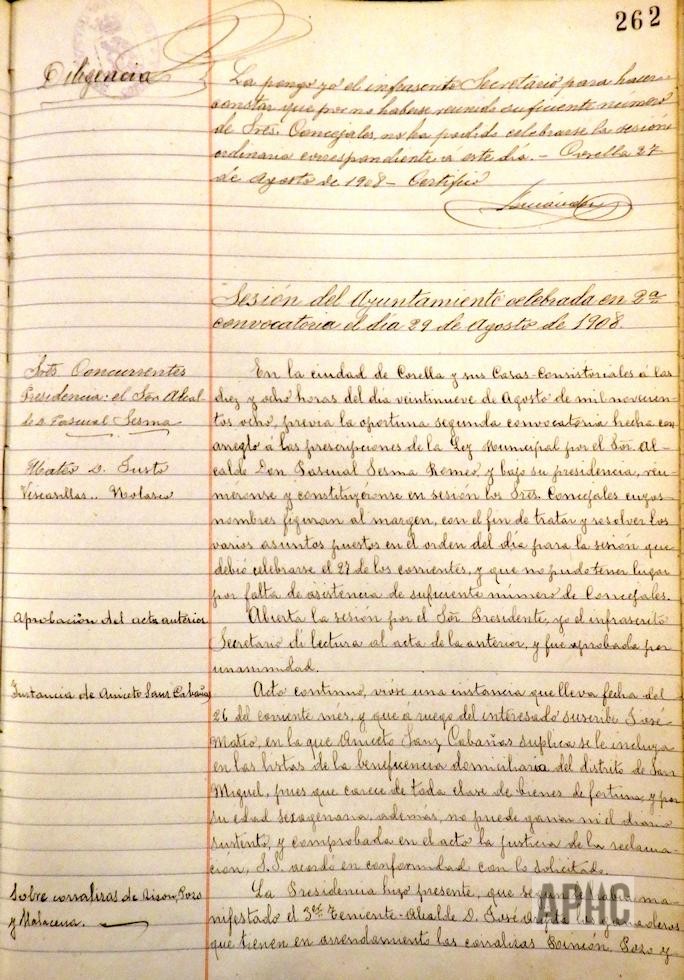 262
Diligencia
La pongo yo el infrascrito Secretario para hacer
constar que por no haberse reunido suficiente número
de Sres. Concejales, no ha podido celebrarse la sesión
ordinaria correspondiente á este día. - Corella 27
de Agosto de 1908 - Certifico
Sesión del Ayuntamiento celebrada en 2ª
convocatoria el día 29 de Agosto de 1908.
Sres. Concurrentes
Presidencia: el Sor. Alcal
de D. Pascual Sesma
Mateo D. Justo
Viscasillas.. Notario
En la ciudad de Corella y sus Casas-Consistoriales á las
diez y ocho horas del día veintinueve de Agosto de mil novecien-
tos ocho, previa la oportuna segunda convocatoria hecha con
arreglo á las prescripciones de la Ley Municipal por el Sor. Al-
calde Don Pascual Sesma Romeo, y bajo su presidencia, reu-
niéronse y constituyéronse en sesión los Sres. Concejales cuyos
nombres figuran al margen, con el fin de tratar y resolver los
varios asuntos puestos en el orden del día para la sesión que
debió celebrarse el 27 de los corrientes, y que no pudo tener lugar
por falta de asistencia de suficiente número de Concejales.
Aprobación del acta anterior
Abierta la sesión por el Sor. Presidente, yo el infrascrito
Secretario dí lectura al acta de la anterior, y fue aprobada por
unanimidad.
Instancia de Aniceto Sanz Cabañas
Acto continuo, vióse una instancia que lleva fecha del
26 del corriente mes, y que á ruego del interesado suscribe José
Mateo, en la que Aniceto Sanz Cabañas suplica se le incluya
en las listas de la beneficencia domiciliaria del distrito de San
Miguel, pues que carece de toda clase de bienes de fortuna, y por
su edad sexagenaria, además, no puede ganar ni el diario
sustento, y comprobada en el acto la justicia de la reclama-
ción, S.S. acordó en conformidad con lo solicitado.
Sobre corralizas de Pozo
y
La Presidencia hizo presente, que según había ma-
nifestado el 3er. Teniente-Alcalde D. José los ganaderos
que tienen en arrendamiento las corralizas Pozo y
APHC